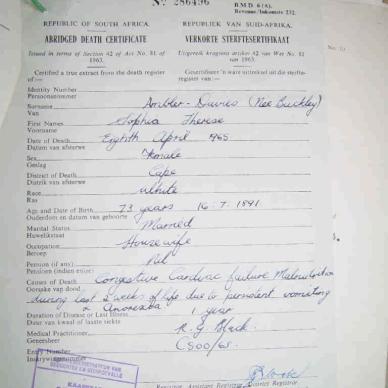 Nº 286496
B.M.D. 6(A).
Revenue/Inkomste 232.
REPUBLIC OF SOUTH AFRICA. REPUBLIEK VAN SUID-AFRIKA.
ABRIDGED DEATH CERTIFICATE VERKORTE STERFTESERTIFIKAAT
Issued in terms of Section 42 of Act No. 81 of 1963. Uitgereik kragtens artikel 42 van Wet No. 81 van 1963.
Certified a true extract from the death register of:— Gesertifiseer 'n ware uittreksel uit die sterfteregister van:—
Identity Number
Persoonsnommer
Surname Ambler-Davies (Nee Buckley)
Van
First Names Sophia Therese
Voorname
Date of Death Eighth April 1965
Datum van afsterwe
Sex Female
Geslag
District of Death Cape
Distrik van afsterwe
Race White
Ras
Age and Date of Birth 73 years 16.7.1891
Ouderdom en datum van geboorte
Marital Status Married
Huwelikstaat
Occupation Housewife
Beroep
Pension (if any) Nil
Pensioen (indien enige)
Causes of Death Congestive Cardiac failure Malnutrition
Oorsake van dood during last 2 weeks of life due to persistent vomiting
& Anorexia.
Duration of Disease or Last Illness 1 year
Duur van kwaal of laaste siekte
Medical Practitioner R. G. Black.
Geneesheer
Entry Number C500/65.
Inskrywingsnommer
Assistant Registrar, District Registrar